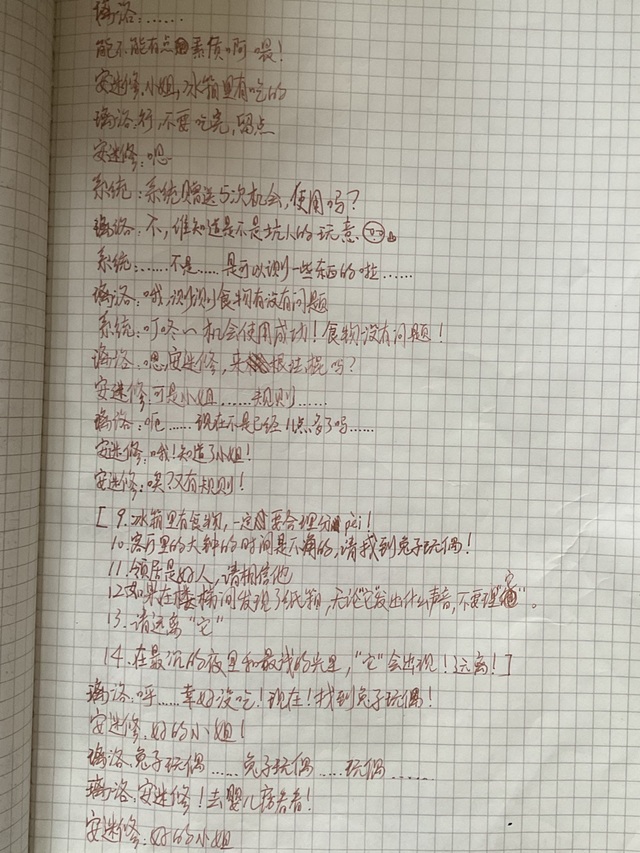 璃洛:……
能不能有点素质啊喂!
安迷修:小姐,冰箱里有吃的
璃洛:行,不要吃完,留点
安迷修:嗯
系统:系统赠送5次机会,使用吗?
璃洛:不,谁知道是不是坑人的玩意
系统:……不是……是可以测一些东西的啦……
璃洛:哦,测测食物有没有问题
系统:叮咚~机会使用成功!食物没有问题!
璃洛:嗯,安迷修,来根法棍吗?
安迷修:可是小姐……规则……
璃洛:呃……现在不是已经儿点多了吗……
安迷修:哦!知道了小姐!
安迷修:唉?又有规则!
[9.冰箱里有食物,一定要合理分pei!
10.客厅里的大钟的时间是不准的,请找到兔子玩偶!
11.领居是好人,请相信他
12.如果在楼梯间发现了纸箱,无论"它"发出什么声音,不要理"它"。
13.请远离"它"
14.在最沉的夜里和最浅的光里,"它"会出现!远离!]
璃洛:呼……幸好没吃!现在!找到兔子玩偶!
安迷修:好的小姐!
璃洛:兔子玩偶……兔子玩偶……玩偶……
璃洛:安迷修!去婴儿房看看!
安迷修:好的小姐